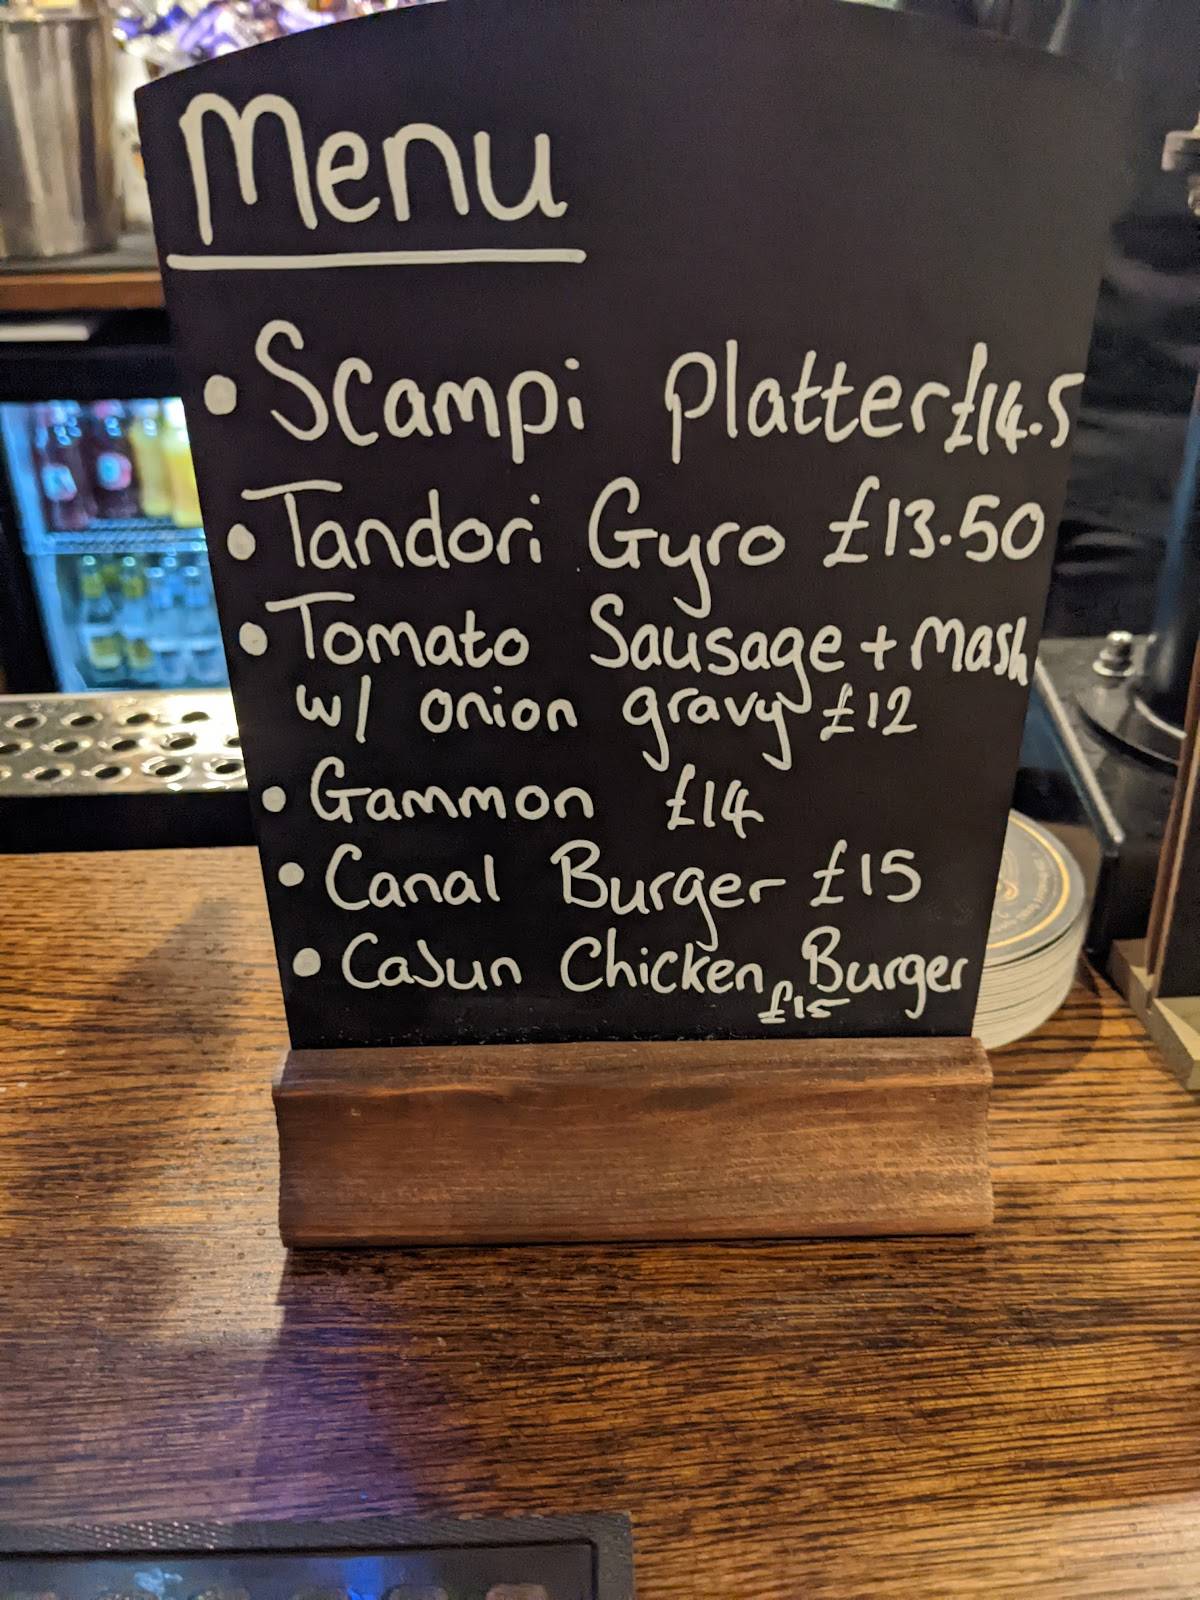 Menu
• Scampi Platter £14.5
• Tandori Gyro £13.50
• Tomato Sausage + Mash
w/ onion gravy £12
• Gammon £14
• Canal Burger £15
• CaJun Chicken Burger
£15